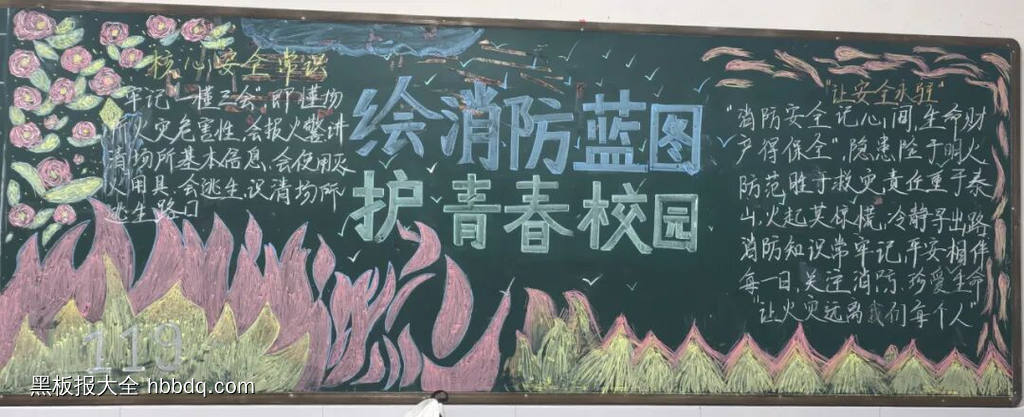 核心安全常识
牢记"一懂三会"即懂场
所火灾危害性,会报火警讲
清场所基本信息,会使用灭
火用具,会逃生,识清场所
逃生路口
绘消防蓝图
护青春校园
"让安全永驻"
"消防安全记心间,生命财
产得保全",隐患险于明火
防范胜于救灾责任重于泰
山,火起莫惊慌,冷静寻出路
消防知识常牢记,平安相伴
每一日,关注消防,珍爱生命
让火灾远离我们每个人
119
黑板报大全 hbbdq.com